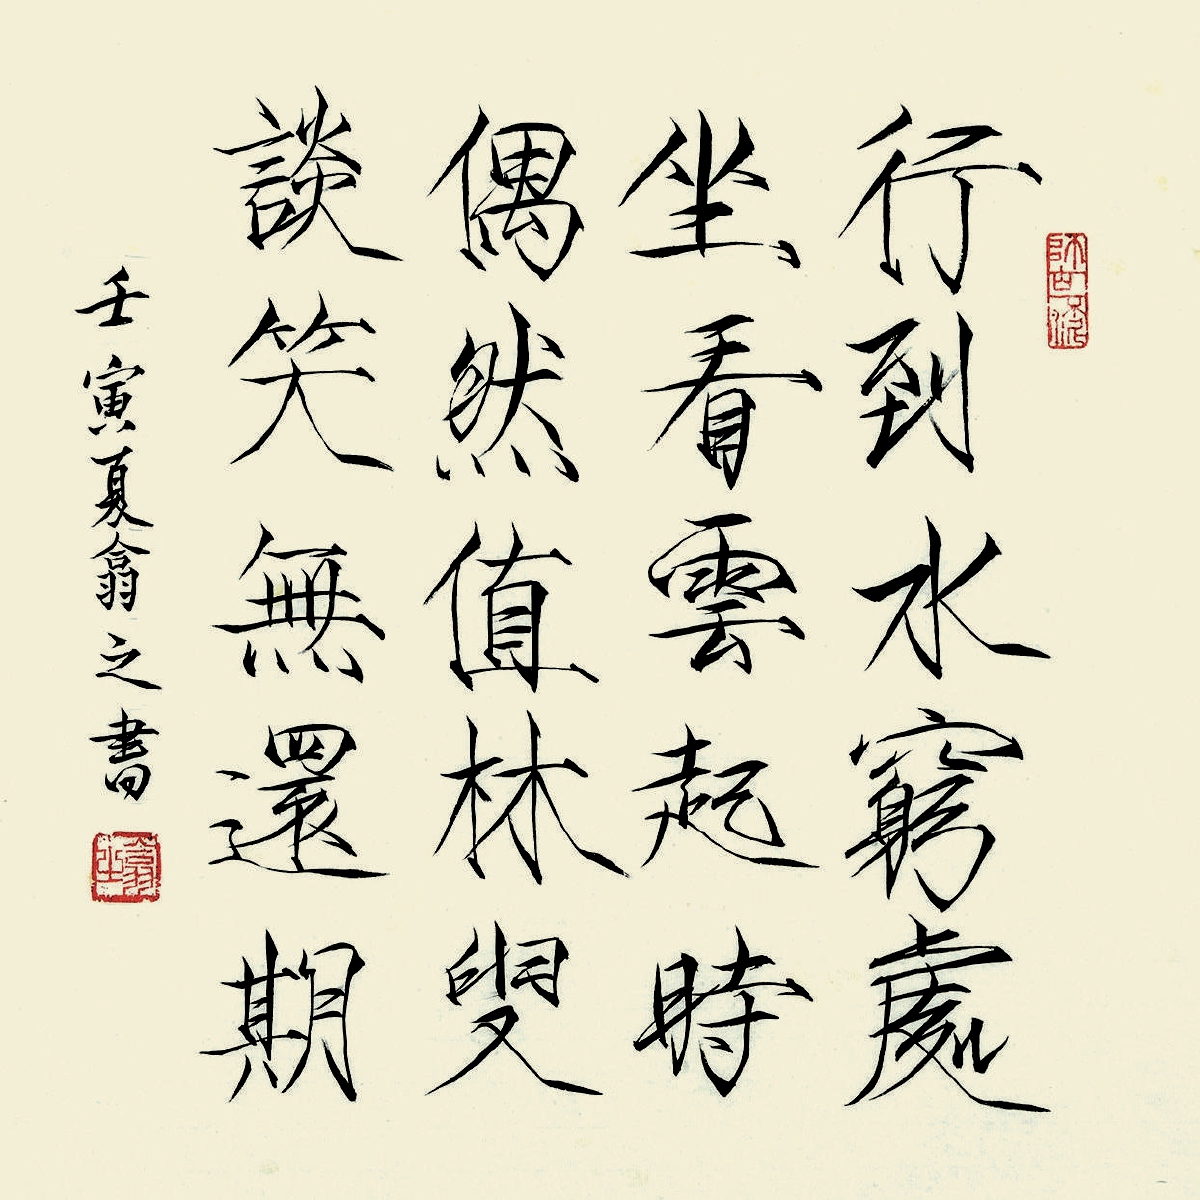 行到水窮處
坐看雲起時
偶然值林叟
談笑無還期
壬寅夏翕之書
翕之